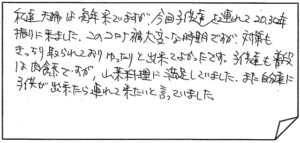 私達夫婦は高年来ですが、今回子供達を連れて20,30年
振りに来ました。このコロナ禍大変な時期ですが、対策も
きっちり取られておりゆったりと出来てよかったです。子供達も普段
は肉食系ですが、山菜料理に満足していました。また自分達に
子供が出来たら連れて来たいと言っていました。